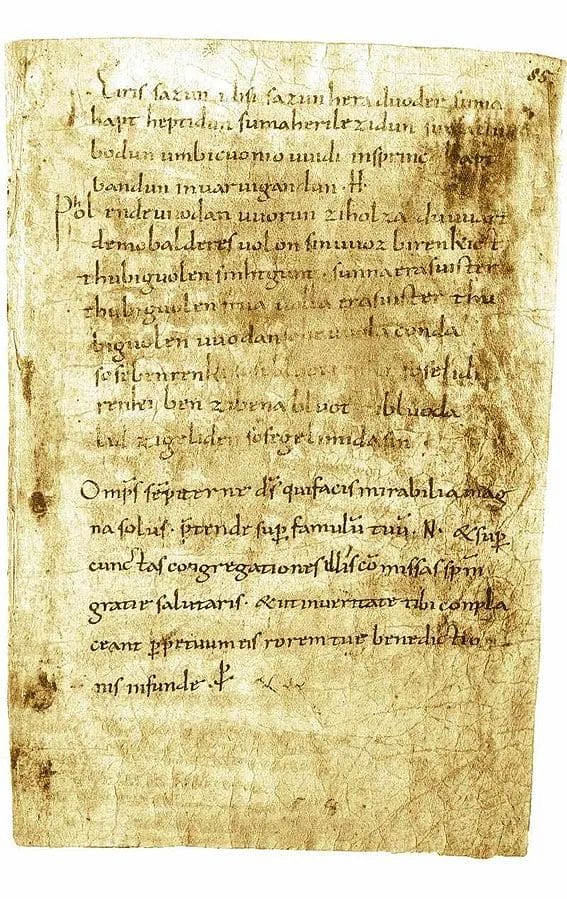 85
Eiris sazun idisi sazun hera duoder suma
hapt heptidun sumaherilezidun sumaclubo
bodun umbicuonio uuidi insprinc hapt
bandun inuar uigandun · H ·
Phol endeuuodan uuorun ziholza du uuart
demobalderes uolon sinuuoz birenkict
thubiguolen sinhtgunt · sunna erasuister
thubiguolen friia uolla erasuister thu
biguolen uuodan sohe uuola conda
sosebenrenki sose
renki ben zibena bluot zibluoda
lid zigeliden sosegelimidasin
Omps sempiterne ds quifacis mirabilia mag
na solus · ptende sup famulu tuu · N · & sup
cunctas congregationes illis comissas spm
gratie salutaris · & ut inueritate tibi conpla
ceant ppetuum eis rorem tue benedictio
nis infunde · P